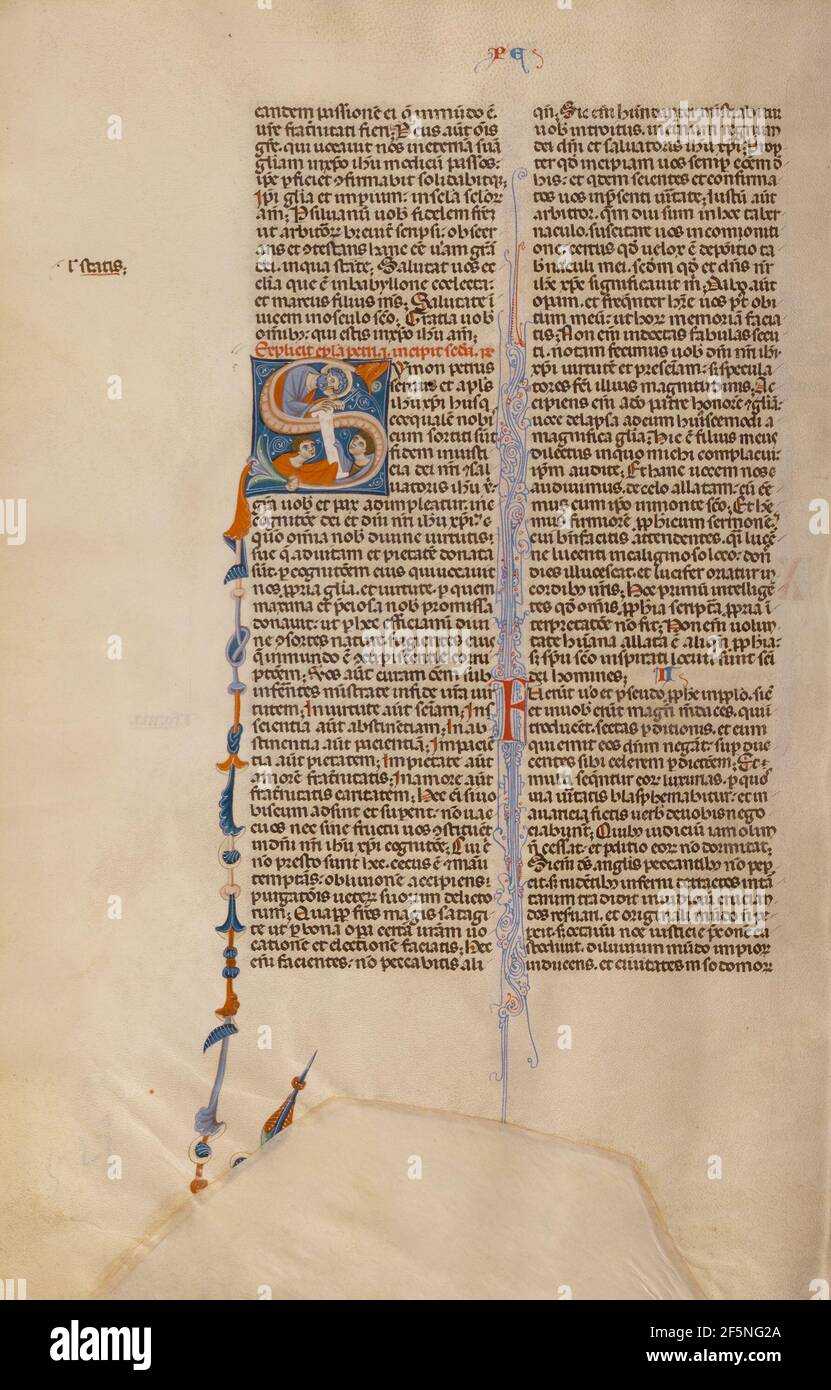 PE
eandem passionē ei q̄ in mūdo ē
uſre fratnitati fieri; Deus aūt oīs
gr̄e. qui uocauit nos in eternā suā
gliam in xp̄o ih̄u modicū passos:
ip̄e pficiet ɔfirmabit solidabitq;
Ip̄i glia et impium: in sc̄la sc̄lor
am̄; P siluanū uob fidelem frēȝ
ut arbitror breuit̄ scripsi: obsecr
ans et ɔtestans hanc cē uīam grāȝ
dei. in qua state; Salutat uos ec
clia que ē in babyllone coelecta:
et marcus filius ms̄; Salutate ī
uicem in osculo sc̄o; Gratia uob
omib; qui estis in xp̄o ih̄u am̄;
r statis;
Explicit epl̄a petri .i. incipit sc̄da .ii
Symon petrus
seruus et apl̄s
ih̄u xp̄i hiis q
coequalē nobi
cum sortiti sūt
fidem in iusti
cia dei nr̄i ⁊ sal
uatoris ih̄u x̄.
grā uob et pax adimpleatur. in c
cognitōe dei et dn̄i nr̄i ih̄u xp̄i:
quo om̄ia nob diuine uirtutis:
sue q̄ ad uitam et pietatē donata
sūt. p cognitōem eius qui uocauit
nos ppria glia. et uirtute. p quem
maxima et p̄ciosa nob promissa
donauit: ut p hec efficiamī diui
ne ɔsortes nature: fugientes eiuc
q̄ in mundo ē ɔcupiscentie corru
ptōem; Uos aūt curam oēm sub
inferētes ministrate in fide ur̄a uir
tutem; In uirtute aūt sciam; In s
scientia aūt abstinentiam; In ab
stinentia aūt pacientiā; In paciē
tia aūt pietatem; In pietate aūt
amorē fratnitatis; In amore aūt
fratnitatis caritatem; Hec ei si uo
biscum adsint et supent. nō uac
cuos nec sine fructu uos ɔstituēt
in dn̄i nr̄i ih̄u xp̄i cognitōe; Cui ē
nō presto sunt hec. cecus ē ⁊ manu
temptās. obliuionē accipiens:
purgatōis ueterꝝ suorum delicto
rum; Quapp frēs magis satagi
te ut p bona opa certā ur̄am uo
cationē et electionē faciatis; Hec
eni facientes. nō peccabitis ali
qn̄; Sic eni habundant̄ ministrabitur
uob introitus. in et̄num regnum
dei dn̄i et saluatoris ih̄u xp̄i; Pp
ter qd incipiam uos semp cōmo
his. et qdem scientes et confirma
tos uos in p̄senti ueritate; Iustū aūt
arbitror. qm̄ diu sum in hoc taber
naculo. suscitare uos in cōmoniti
one. certus qd uelox ē depositio ta
bnaculi mei. scdm qd et dn̄s nr̄
ih̄c xp̄c significauit m̄; Dabo aūt
opam. et freqnter hr̄e uos pt obi
tum meū: ut horꝝ memoriā facia
tis; Non eni indoctas fabulas secu
ti. notam fecimus uob dn̄i nr̄i ih̄u
xp̄i uirtutē et presciam: s; specula
tores fc̄i illius magnitudinis. Ac
cipiens eni a dō patre honorē ⁊ gliā:
uoce delapsa ad eum huiuscemodi a
magnifica glia; Hic ē filius meus
dilectus in quo michi complacui:
ip̄m audite; Et hanc uocem nos e
audiuimus. de celo allatam. cū ēe
mus cum ip̄o in monte sc̄o; Et hēe
mus firmiorē pph̄icum sermonē:
cui bn̄ facitis attendentes. qi lucē
ne lucenti in caliginoso loco: donc
dies illucescat. et lucifer oriatur in
cordib; ur̄is; Hoc primū intelligē
tes qd omis pph̄ia scripte ppria ī
terpretatōe nō fit; Non eni uolun
tate humana allata ē aliqn pph̄ia:
s; sp̄u sc̄o inspirati locuti sunt sc̄i
dei homines;
II
Fuerūt uo et pseudo pph̄e in pplo. sic̄
et in uob erūt magr̄i mdaces. qui ī
troducent. sectas pditionis. et eum
qui emit eos dn̄m negāt: sup duc
centes sibi celerem pditōem; Et
multi seqntur eorꝝ luxurias. p quos
uia ueritatis blasphemabitur. et in
auaricia fictis uerb de uobis nego
ciabunt; Quib; iudiciū iam olim
n̄ cessat. et pditio eorꝝ nō dormitat;
Si eni ds̄ angl̄is peccantib; nō pep
cit. s; rudētib; inferni detractos in tā
tarum tradidit in iudiciū crucian
dos reseruari. et originali mūdo n̄ pe
pcit. s; octauū noe iusticie pconē cu
stodiuit. diluuium mūdo impiorꝝ
inducens. et ciuitates in sodomorꝝ
alamy
Image ID: 2F5NG2A
www.alamy.com